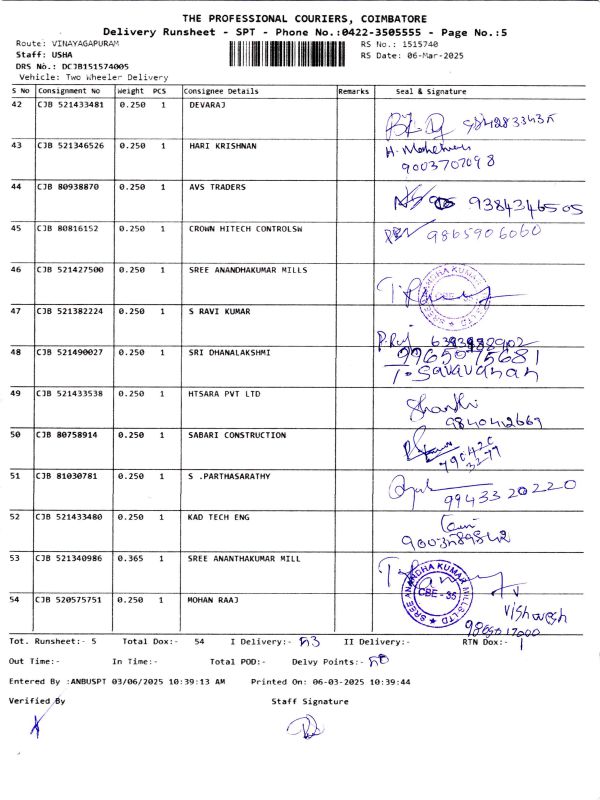 THE PROFESSIONAL COURIERS, COIMBATORE
Delivery Runsheet - SPT - Phone No.:0422-3505555 - Page No.:5
Route: VINAYAGAPURAM RS No.: 1515740
Staff: USHA RS Date: 06-Mar-2025
DRS No.: DCJB151574005
Vehicle: Two Wheeler Delivery
S No Consignment No Weight PCS Consignee Details Remarks Seal & Signature
42 CJB 521433481 0.250 1 DEVARAJ
43 CJB 521346526 0.250 1 HARI KRISHNAN
9003707098
44 CJB 80938870 0.250 1 AVS TRADERS
9384346505
45 CJB 80816152 0.250 1 CROWN HITECH CONTROLSW
9865906060
46 CJB 521427500 0.250 1 SREE ANANDHAKUMAR MILLS
47 CJB 521382224 0.250 1 S RAVI KUMAR
48 CJB 521490027 0.250 1 SRI DHANALAKSHMI
9965075681
T. Saravanan
49 CJB 521433538 0.250 1 HTSARA PVT LTD
Shanthi
9840412669
50 CJB 80758914 0.250 1 SABARI CONSTRUCTION
790420
3277
51 CJB 81030781 0.250 1 S .PARTHASARATHY
9943320220
52 CJB 521433480 0.250 1 KAD TECH ENG
53 CJB 521340986 0.365 1 SREE ANANTHAKUMAR MILL
SREE ANANDHA KUMAR MILLS LTD
CBE - 35
54 CJB 520575751 0.250 1 MOHAN RAAJ
Vishwesh
Tot. Runsheet:- 5 Total Dox:- 54 I Delivery:- 53 II Delivery:- RTN Dox:- 1
Out Time:- In Time:- Total POD:- Delvy Points:- 50
Entered By :ANBUSPT 03/06/2025 10:39:13 AM Printed On: 06-03-2025 10:39:44
Verified By Staff Signature